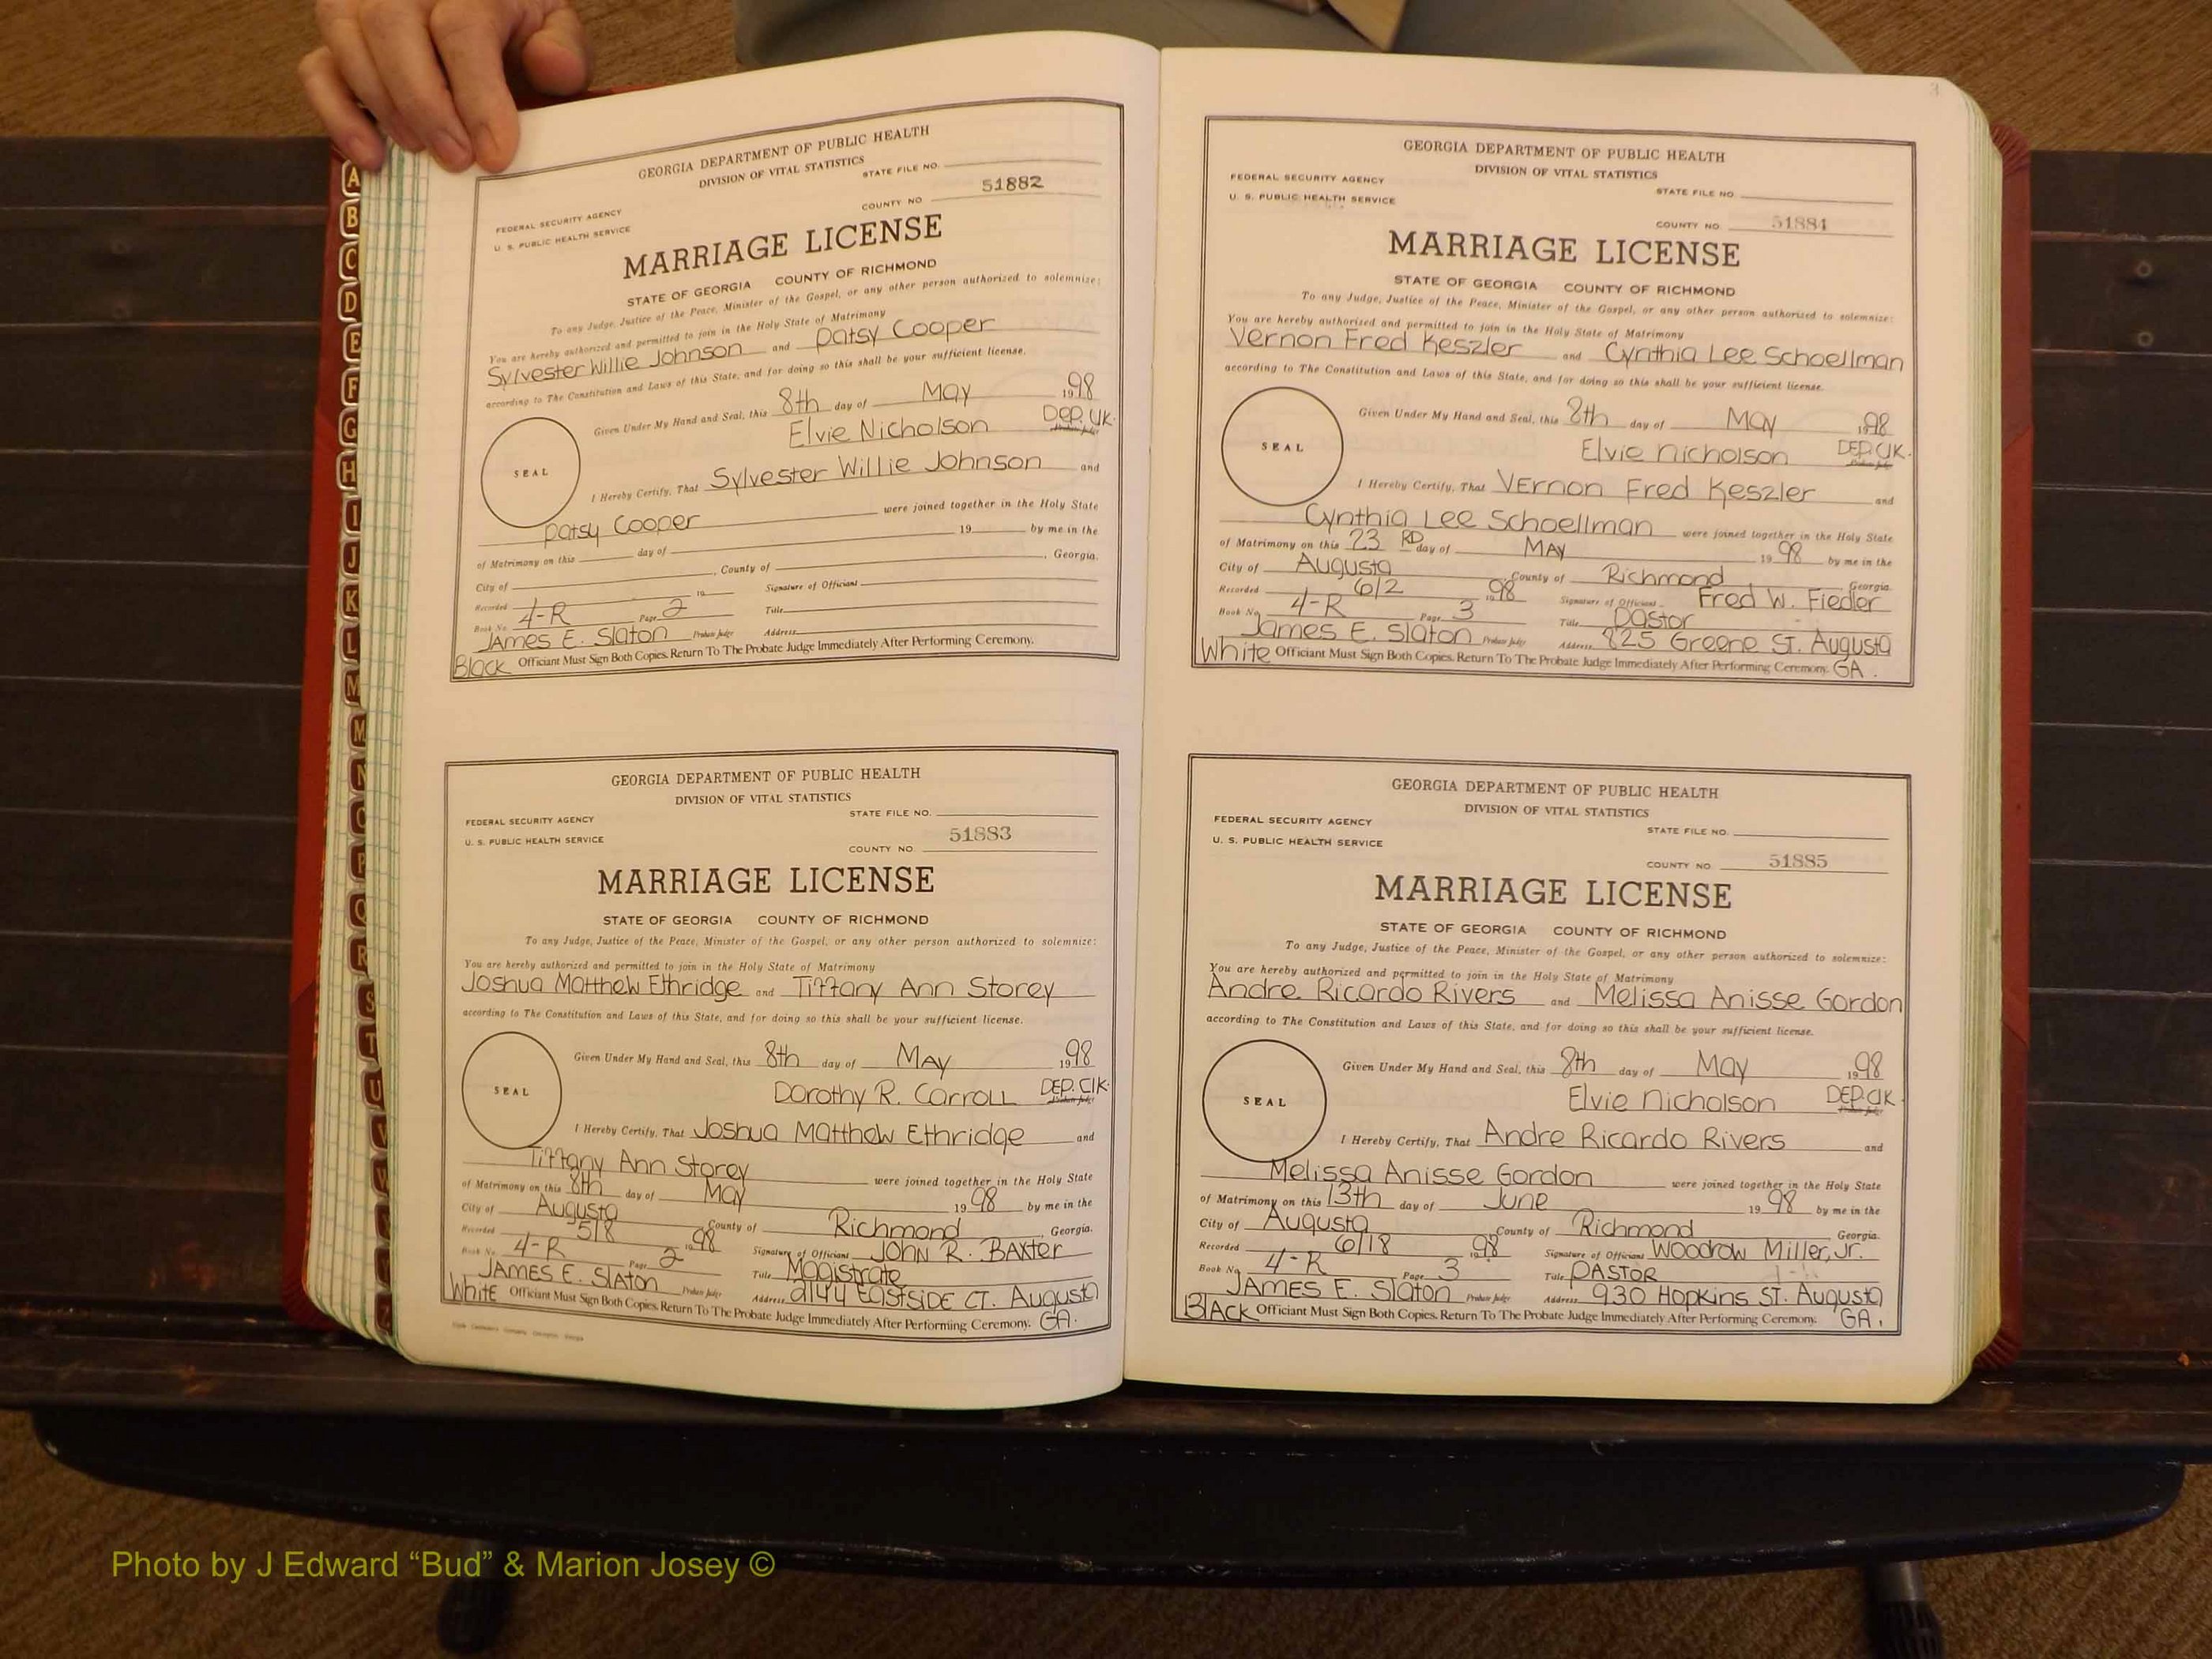 A
B
C
D
E
F
G
H
I
J
K
L
M
M
N
O
P
Q
R
S
T
U
V
W
Z
GEORGIA DEPARTMENT OF PUBLIC HEALTH
DIVISION OF VITAL STATISTICS
STATE FILE NO.
FEDERAL SECURITY AGENCY
U. S. PUBLIC HEALTH SERVICE
COUNTY NO 51882
MARRIAGE LICENSE
STATE OF GEORGIA COUNTY OF RICHMOND
To any Judge, Justice of the Peace, Minister of the Gospel, or any other person authorized to solemnize:
You are hereby authorized and permitted to join in the Holy State of Matrimony
Sylvester Willie Johnson and Patsy Cooper
according to The Constitution and Laws of this State, and for doing so this shall be your sufficient license.
Given Under My Hand and Seal, this 8th day of May 1998
Elvie Nicholson DEP. CLK.
Probate Judge
SEAL
I Hereby Certify, That Sylvester Willie Johnson and
Patsy Cooper were joined together in the Holy State
of Matrimony on this day of 19 by me in the
City of , County of , Georgia.
Recorded 19 Signature of Officiant
Book No. 4-R Page 2 Title
James E. Slaton Probate Judge Address
Black Officiant Must Sign Both Copies. Return To The Probate Judge Immediately After Performing Ceremony.
GEORGIA DEPARTMENT OF PUBLIC HEALTH
DIVISION OF VITAL STATISTICS
STATE FILE NO.
FEDERAL SECURITY AGENCY
U. S. PUBLIC HEALTH SERVICE
COUNTY NO. 51883
MARRIAGE LICENSE
STATE OF GEORGIA COUNTY OF RICHMOND
To any Judge, Justice of the Peace, Minister of the Gospel, or any other person authorized to solemnize:
You are hereby authorized and permitted to join in the Holy State of Matrimony
Joshua Matthew Ethridge and Tiffany Ann Storey
according to The Constitution and Laws of this State, and for doing so this shall be your sufficient license.
Given Under My Hand and Seal, this 8th day of May 1998
Dorothy R. Carroll DEP. Clk.
Probate Judge
SEAL
I Hereby Certify, That Joshua Matthew Ethridge and
Tiffany Ann Storey were joined together in the Holy State
of Matrimony on this 8th day of May 1998 by me in the
City of Augusta County of Richmond, Georgia.
Recorded 5/8 1998 Signature of Officiant John R. Baxter
Book No. 4-R Page 2 Title Magistrate
James E. Slaton Probate Judge Address 2144 Eastside Ct. Augusta
White Officiant Must Sign Both Copies. Return To The Probate Judge Immediately After Performing Ceremony. GA.
3
GEORGIA DEPARTMENT OF PUBLIC HEALTH
DIVISION OF VITAL STATISTICS
FEDERAL SECURITY AGENCY
STATE FILE NO
U. S. PUBLIC HEALTH SERVICE
COUNTY NO. 51884
MARRIAGE LICENSE
STATE OF GEORGIA COUNTY OF RICHMOND
To any Judge, Justice of the Peace, Minister of the Gospel, or any other person authorized to solemnize:
You are hereby authorized and permitted to join in the Holy State of Matrimony
Vernon Fred Keszler and Cynthia Lee Schoellman
according to The Constitution and Laws of this State, and for doing so this shall be your sufficient license.
Given Under My Hand and Seal, this 8th day of May 1998
Elvie Nicholson DEP. Clk.
Probate Judge
SEAL
I Hereby Certify, That Vernon Fred Keszler and
Cynthia Lee Schoellman were joined together in the Holy State
of Matrimony on this 23 RD day of May 1998 by me in the
City of Augusta County of Richmond Georgia.
Recorded 6/2 98 Signature of Officiant Fred W. Fiedler
Book No. 4-R Page 3 Title Pastor
James E. Slaton Probate Judge Address 825 Greene St. Augusta
White Officiant Must Sign Both Copies. Return To The Probate Judge Immediately After Performing Ceremony. GA.
GEORGIA DEPARTMENT OF PUBLIC HEALTH
DIVISION OF VITAL STATISTICS
FEDERAL SECURITY AGENCY
STATE FILE NO.
U. S. PUBLIC HEALTH SERVICE
COUNTY NO 51885
MARRIAGE LICENSE
STATE OF GEORGIA COUNTY OF RICHMOND
To any Judge, Justice of the Peace, Minister of the Gospel, or any other person authorized to solemnize:
You are hereby authorized and permitted to join in the Holy State of Matrimony
Andre Ricardo Rivers and Melissa Anisse Gordon
according to The Constitution and Laws of this State, and for doing so this shall be your sufficient license.
Given Under My Hand and Seal, this 8th day of May 1998
Elvie Nicholson DEP. Clk
Probate Judge
SEAL
I Hereby Certify, That Andre Ricardo Rivers and
Melissa Anisse Gordon were joined together in the Holy State
of Matrimony on this 13th day of June 1998 by me in the
City of Augusta County of Richmond Georgia.
Recorded 6/18 1998 Signature of Officiant Woodrow Miller, Jr.
Book No. 4-R Page 3 Title Pastor
James E. Slaton Probate Judge Address 930 Hopkins St. Augusta
Black Officiant Must Sign Both Copies. Return To The Probate Judge Immediately After Performing Ceremony. GA.
Photo by J Edward “Bud” & Marion Josey ©